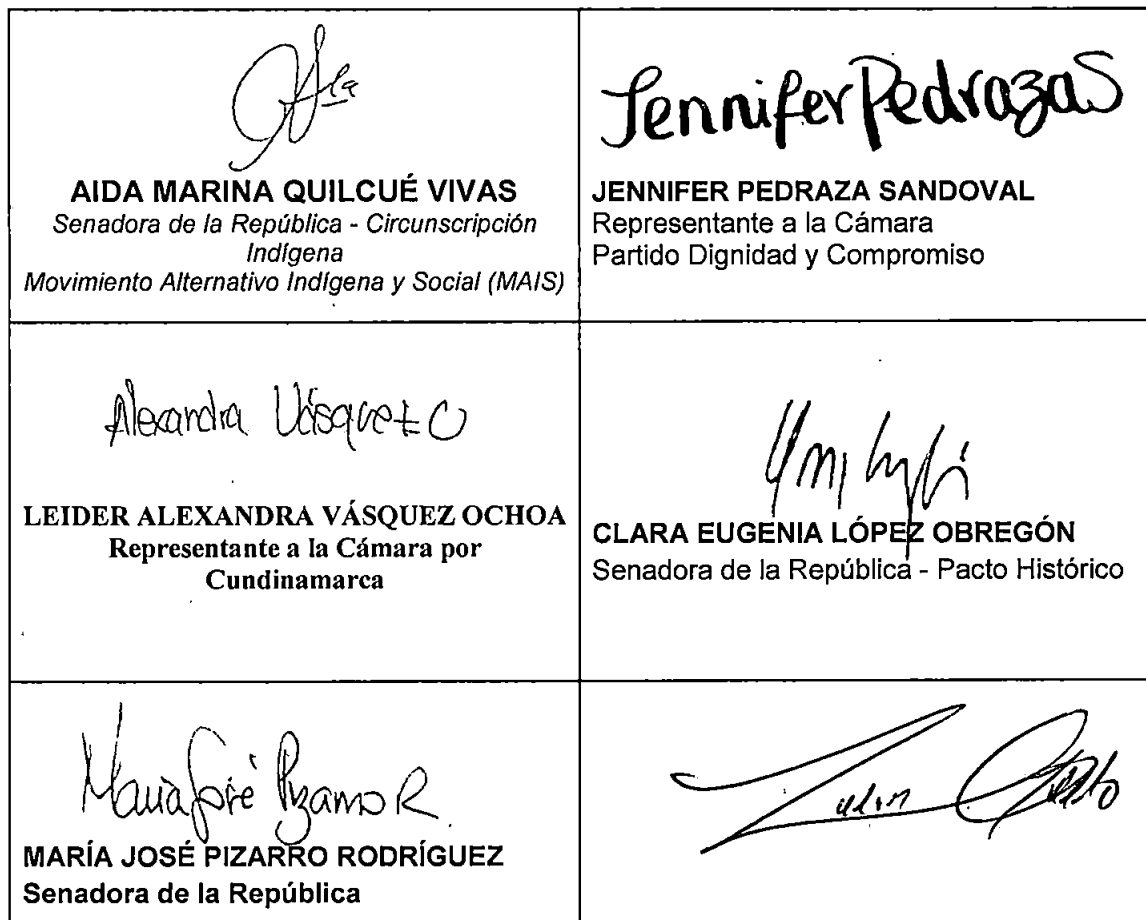 AIDA MARINA QUILCUÉ VIVAS
Senadora de la República - Circunscripción
Indígena
Movimiento Alternativo Indígena y Social (MAIS)
Jennifer Pedraza S
JENNIFER PEDRAZA SANDOVAL
Representante a la Cámara
Partido Dignidad y Compromiso
Alexandra Vásquez O
LEIDER ALEXANDRA VÁSQUEZ OCHOA
Representante a la Cámara por
Cundinamarca
CLARA EUGENIA LÓPEZ OBREGÓN
Senadora de la República - Pacto Histórico
María José Pizarro R.
MARÍA JOSÉ PIZARRO RODRÍGUEZ
Senadora de la República